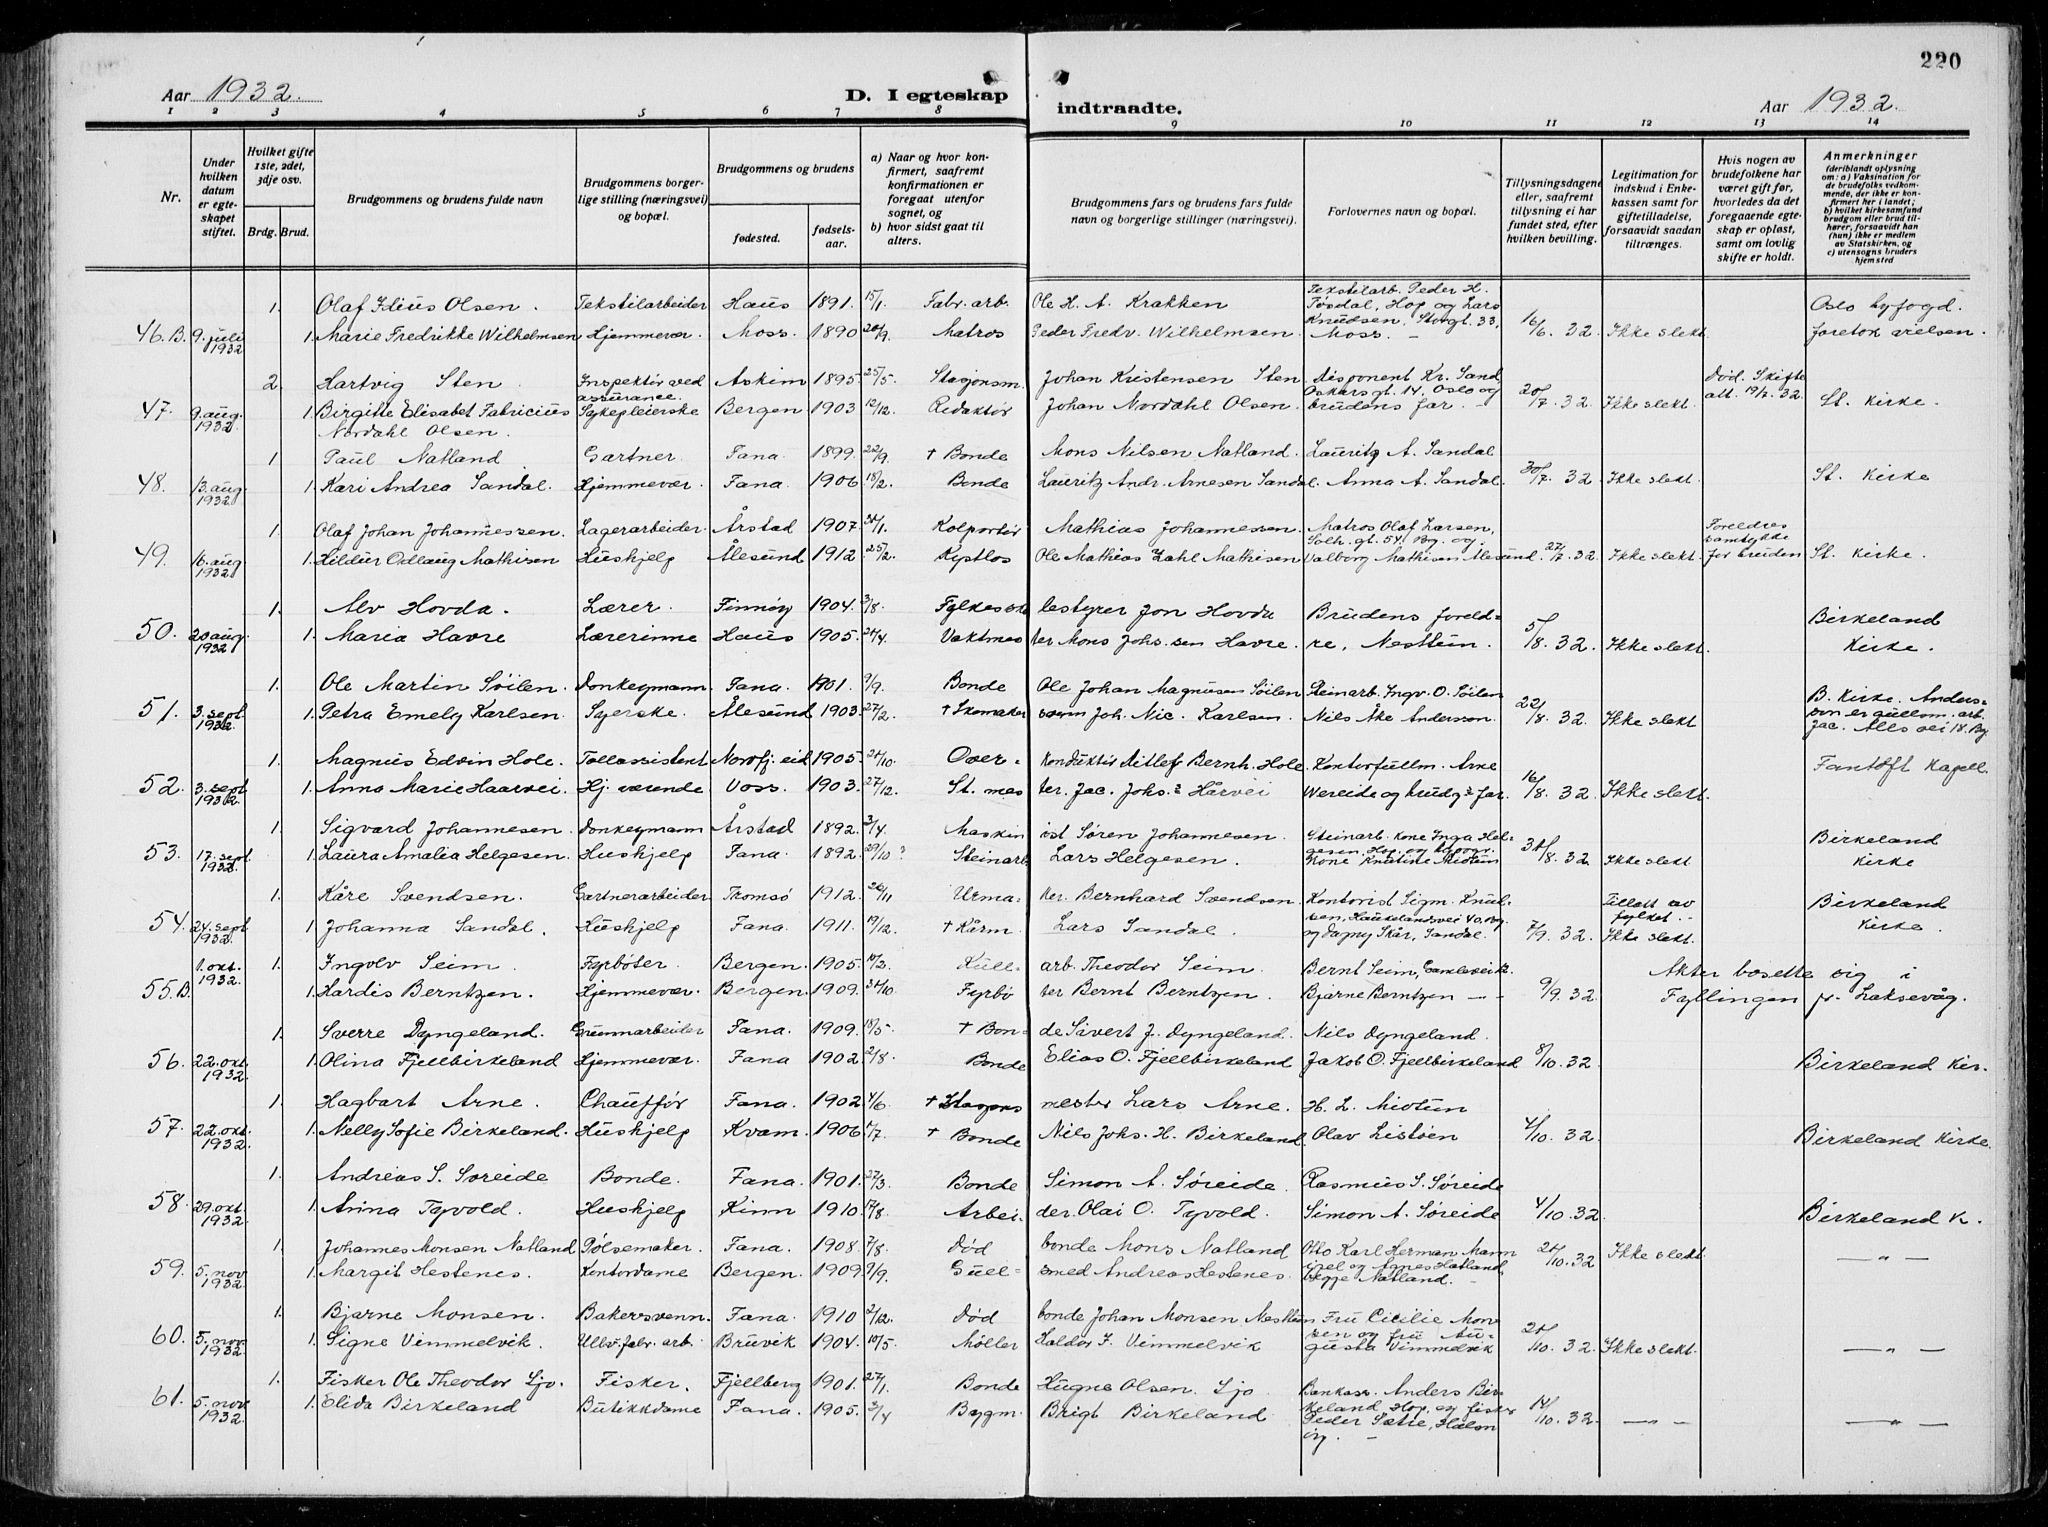 220
Aar 1932. D. I egteskap indtraadte. Aar 1932.
1 2 3 4 5 6 7 8 9 10 11 12 13 14
Nr.
Under hvilken datum er egteskapet stiftet.
Hvilket gifte 1ste, 2det, 3dje osv.
Brdg. Brud.
Brudgommens og brudens fulde navn
Brudgommens borgerlige stilling (næringsvei) og bopæl.
Brudgommens og brudens
fødested. fødselsaar.
a) Naar og hvor konfirmert, saafremt konfirmationen er foregaat utenfor sognet, og
b) hvor sidst gaat til alters.
Brudgommens fars og brudens fars fulde navn og borgerlige stillinger (næringsvei).
Forlovernes navn og bopæl.
Tillysningsdagene eller, saafremt tillysning ei har fundet sted, efter hvilken bevilling.
Legitimation for indskud i Enkekassen samt for giftetilladelse, forsaavidt saadan tiltrænges.
Hvis nogen av brudefolkene har været gift før, hvorledes da det foregaaende egteskap er opløst, samt om lovlig skifte er holdt.
Anmerkninger (deriblandt oplysning om: a) Vaksination for de brudefolks vedkommende, der ikke er konfirmert her i landet; b) hvilket kirkesamfund brudgom eller brud tilhører, forsaavidt han (hun) ikke er medlem av Statskirken, og c) utensogns bruders hjemsted
1. Olaf Idius Olsen. Tekstilarbeider Haus 1891. 15/1. Fabr. arb. Ole H. A. Krakken Tekstilarb. Peder H. Tøsdal, Hop og Lars Oslo byfogd.
46.B. 9. juli 1932 1. Marie Fredrikke Wilhelmsen Hjemmevær. Moss. 1890 20/9. Matros Peder Fredr. Wilhelmsen Knudsen, Storgt. 33, Moss. – 16/6. 32 Ikke slekt foretok vielsen.
2. Hartvig Sten Inspektør ved assurance. Askim 1895. 25/5. Stasjonsm. Johan Kristensen Sten disponent Kr. Sand, Oskarsgt. 14, Oslo og Død. Skifte
47. 9. aug. 1932 1. Birgitte Elisabet Fabricius Nordahl Olsen. Sykepleierske Bergen 1903 12/12. Redaktør Johan Nordahl Olsen. brudens far. – 20/7. 32. Ikke slekt. att. 19/7. 32. St. Kirke.
1 Paul Natland Gartner. Fana. 1899. 22/9. † Bonde Mons Nilsen Natland. Lauritz A. Sandal
48. 13. aug. 1932 1. Kari Andrea Sandal. Hjemmevær. Fana. 1906 13/2. Bonde Lauritz Andr. Arnesen Sandal. Anna A. Sandal. 30/7. 32. Ikke slekt. St. Kirke
1. Olaf Johan Johannessen. Lagerarbeider. Årstad 1907. Kolportør Mathias Johannessen. Matros Olaf Larsen, Solh. gt. 54. Bg. og Foreldres samtykke
49. 16. aug 1932 1. Hildur Odlaug Mathisen Huskjelp Ålesund 1912. 25/2. Kystlos Ole Mathias Zahl Mathisen Valborg Mathisen Ålesund. 27/7. 32. Ikke slekt for bruden St. Kirke.
1. Alv Hovda. Lærer. Finnøy 1904. 3/8. Fylkessko lestyrer Jon Hovda Brudens foreld- Birkeland
50. 20 aug. 1932 1. Maria Havre Lærerinne Haus 1905. 24/4. Vaktmes ter Mons Johs. sen Havre. re, Nesttun. 5/8. 32. Ikke slekt Kirke.
1. Ole Martin Søilen. Donkeymann. Fana. 1901. 9/9. Bonde Ole Johan Magnusen Søilen Steinarb. Ingv. O. Søilen B. Kirke. Anders-
51. 3. sept. 1932 1. Petra Emely Karlsen. Syerske. Ålesund 1903. 27/2. † Skomaker svenn Joh. Nic. Karlsen. Nils Åke Andersson. 22/8. 32. Ikke slekt son er gullom. arb. Jac. Alls vei 18. Bg.
1. Magnus Edvin Hole. Tollassistent Nordfj. eid 1905. 24/10. Over- konduktør Ditlef Bernh. Hole. Kontorfullm. Arne Fantoft Kapell.
52. 3. sept 1932. 1. Anna Marie Haarvei. Hj. værende Voss. 1903. 27/12. St. mes ter. Jac. Johs. s. Hårvei Wereide og brudg.s far. 16/8. 32 Ikke slekt.
1. Sigvard Johannesen. Donkeymann Årstad 1892. 3/4. Maskin ist Søren Johannesen. Steinarb. kone Inga Helgesen, Hop Birkeland
53. 17. sept. 1932. 1. Laura Amalia Helgesen. Huskjelp Fana. 1892. 29/10? Steinarb. Lars Helgesen. kone Kristine Midtun 31/8. 32 Ikke slekt Kirke
1. Kåre Svendsen. Gartnerarbeider Tromsø 1912. 26/11 Urma- ker. Bernhard Svendsen Kontorist Sigm. Knudsen, Haukelandsvei 40. Bg. Tillatt av fylket. Birkeland
54. 24. sept 1932. 1 Johanna Sandal. Huskjelp Fana. 1911. 19/12. † Kårm. Lars Sandal. og Dagny Skår, Sandal. 7/9. 32. Ikke slekt. Kirke.
1. okt. 1932. 1. Ingolv Seim. Fyrbøter. Bergen. 1905. 17/3. Kull- arb. Theodor Seim. Bernt Seim, Akter bosette sig i
55 B. 1. Hardis Berntzen. Hjemmevær. Bergen. 1909. 31/10 Fyrbø ter Bernt Berntzen. Bjarne Berntzen – – 9/9. 32. Fyllingen pr. Laksevåg.
1. Sverre Dyngeland. Grunnarbeider Fana. 1909. 18/5. † Bon- de Sivert J. Dyngeland. Nils Dyngeland.
56. 22. okt. 1932. 1. Olina Fjellbirkeland Hjemmevær. Fana 1902. 2/8. Bonde Elias O. Fjellbirkeland Jakob O. Fjellbirkeland 8/10. 32. Birkeland Kir.
1. Hagbart Arne. Chauffør Fana. 1902. 4/6. † Stasjons mester Lars Arne. H. L. Midtun
57. 22. okt. 1932. 1. Nelly Sofie Birkeland. Huskjelp Kvam. 1906 11/7. † Bonde Nils Johs. H. Birkeland. Olav Listøen 4/10. 32. Birkeland Kirke.
1. Andreas S. Søreide Bonde. Fana. 1901. 27/3. Bonde Simon A. Søreide. Rasmus S. Søreide
58. 29. okt. 1932. 1. Anna Tyvold. Huskjelp Kinn 1910. 17/8. Arbei- der. Olai O. Tyvold. Simon A. Søreide 4/10. 32. Birkeland K.
1. Johannes Monsen Natland Pølsemaker. Fana. 1908. 7/8. Død bonde Mons Natland Otto Karl Herman
59. 5. nov 1932. 1. Margit Hestenes. Kontordame Bergen. 1909. 9/9. Gull- smed Andreas Hestenes. og Agnes Hatland, begge Natland. – 20/10. 32 Ikke slekt. – „ –
1. Bjarne Monsen. Bakersvenn. Fana. 1910 2/12. Død bonde Johan Monsen Nesttun Fru Cicilie Mon-
60. 5. nov 1932. 1. Signe Vimmelvik. Ullv. fabr. arb. Bruvik 1904. 10/5. Møller Haldor J. Vimmelvik sen og fru Augusta Vimmelvik 20/10. 32. Ikke slekt. – „ –
1. Fisker Ole Theodor Ljo. Fisker. Fjellberg 1901. 27/1. Bonde Hugne Olsen. Ljo. Bankass. Anders Bir-
61. 5. nov 1932. 1. Elida Birkeland Butikkdame Fana. 1905. 3/4 Bygm. Brigt Birkeland. keland, Hop, og fisker Peder Sætre, Halsnøy. – 14/10. 32. – „ – – „ –